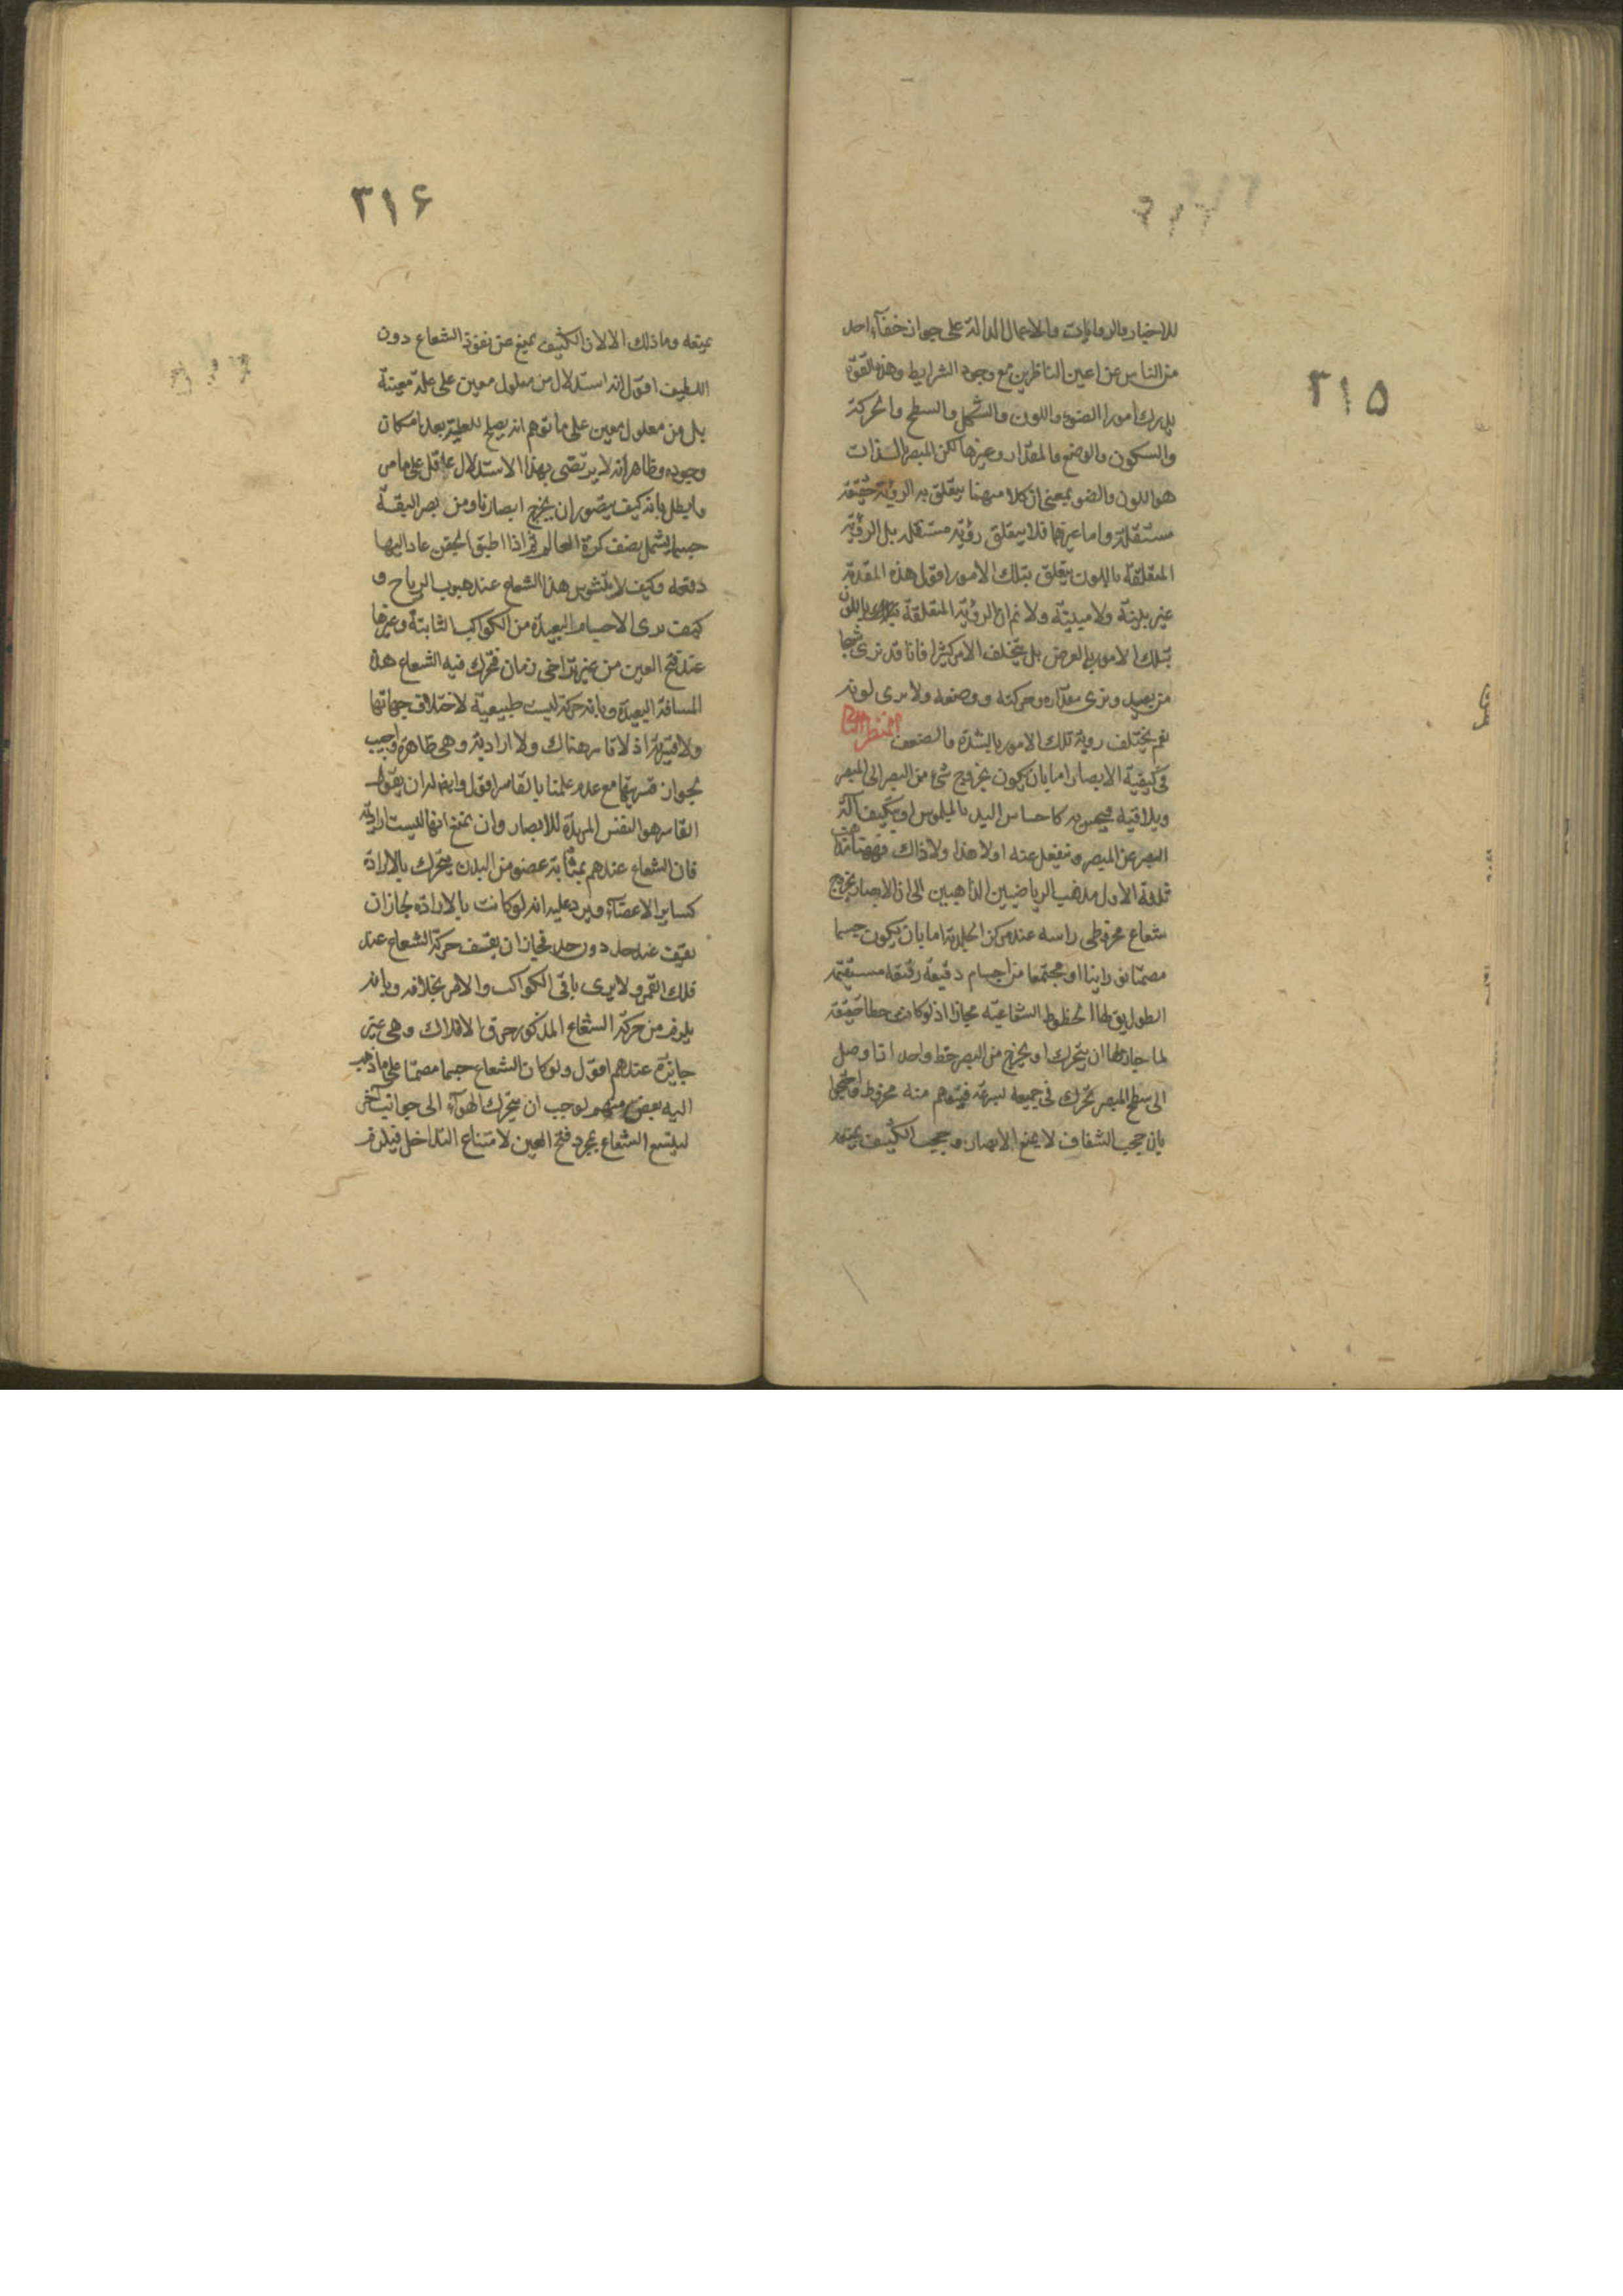 ٣١٥
للاخبار والروايات والاعمال الدالة على جواز خفآء احد
من الناس عن اعين الناظرين مع وجود الشرايط وهذه القوّة
يدرك امورا الضوء واللون والشكل والسطح والحركة
والسكون والوضع والمقدار وغيرها لكن المبصر بالذات
هو اللون والضوء بمعنى ان كلا منهما يتعلق به الرؤية حقيقة
مستقلة واما غيرهما فلا يتعلق رؤية مستقلة بل الرؤية
المتعلقة باللون يتعلق بتلك الامور اقول هذه المقدمة
غير بينة ولا مبينة ولا نم ان الرؤية المتعلقة باللون
بتلك الامور بالعرض بل يتخلف الامر كثيرا فانا قد نرى شبحا
من بعيد ونرى مقداره وحركته ووضعه ولا نرى لونه
نعم يختلف روية تلك الامور بالشدة والضعف المنظر
فى كيفية الابصار اما بان يكون بخروج شىء من البصر الى المبصر
ويلاقيه فيحس به كاحساس اليد بالملموس او يتكيف آلة
البصر عن المبصر وتنفعل عنه اولا هذا ولا ذاك فههنا مذاهب
ثلاثة الاول مذهب الرياضيين الذاهبين الى ان الابصار بخروج
شعاع مخروطى راسه عند مركز الجليدية اما بان يكون جسما
مصمتا نورانيا او مجتمعا من اجسام دقيقة رقيقة مستقيمة
الطول يق لها الخطوط الشعاعية مجازا اذ لو كانت خطا حقيقة
لما جاز لها ان يتحرك او يخرج من البصر خط واحد اذا وصل
الى سطح المبصر تحرك فى جميعه لسرعة فيتوهم منه مخروط واحتجوا
بان حجب الشفاف لا يمنع الابصار وحجب الكثيف يمنعه
٣١۶
يمنعه وما ذلك الا لان الكثيف يمنع عن نفوذ الشعاع دون
اللطيف اقول انه استدلال من معلول معين على علة معينة
بل من معلول معين على ما توهم انه يصلح للعلية بعد امكان
وجوده وظاهر انه لا يرتضى بهذا الاستدلال عاقل على ما مر
وابطل بانه كيف يتصور ان يخرج ابصارنا ومن بصر البقة
جسم يشمل نصف كرة العالم ثم اذا اطبق الجفن عاد اليها
دفعه وكيف لا يتشوش هذا الشعاع عند هبوب الرياح و
كيف نرى الاجسام البعيدة من الكواكب الثابتة وغيرها
عند فتح العين من غير تراخى زمان فتحرك فيه الشعاع هذه
المسافة البعيدة وبانه حركة ليست طبيعية لاختلاف جهاتها
ولا قسرية اذ لا قاسر هناك ولا ارادية وهى ظاهرة واجيب
بجواز قسريتها مع عدم علمنا بالقاسر اقول وايض له ان يقول
القاسر هو النفس المريدة للابصار وان يمنع انها ليست ارادية
فان الشعاع عندهم بمثابة عضو من البدن يتحرك بالارادة
كساير الاعضآء ويرد عليه انه لو كانت بالارادة لجاز ان
يقف عند حد دون حد فجاز ان يقف حركة الشعاع عند
فلك القمر ولا يرى باقى الكواكب والامر بخلافه وبانه
يلزم من حركة الشعاع المذكور خرق الافلاك وهى غير
جايزة عندهم اقول ولو كان الشعاع جسما مصمتا على ما ذهب
اليه بعض منهم لوجب ان يتحرك الهوآء الى جوانب اخر
ليتسع الشعاع بمجرد فتح العين لامتناع التداخل فيلزم